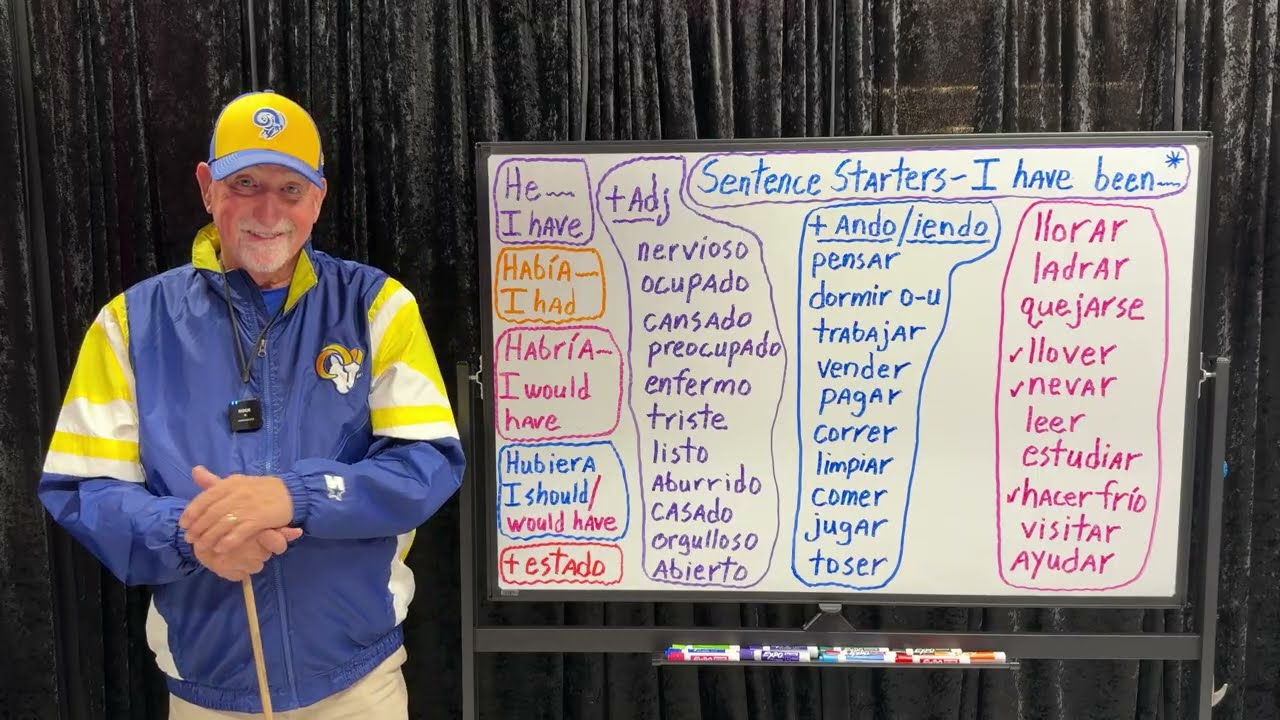 Sentence Starters - I have been~*
He~
I have
Había~
I had
Habría~
I would
have
Hubiera
I should/
would have
+ estado
+ Adj
nervioso
ocupado
cansado
preocupado
enfermo
triste
listo
Aburrido
casado
orgulloso
Abierto
+ Ando/iendo
pensar
dormir o-u
trabajar
vender
pagar
correr
limpiar
comer
jugar
toser
llorar
ladrar
quejarse
✓llover
✓nevar
leer
estudiar
✓hacer frío
visitar
ayudar